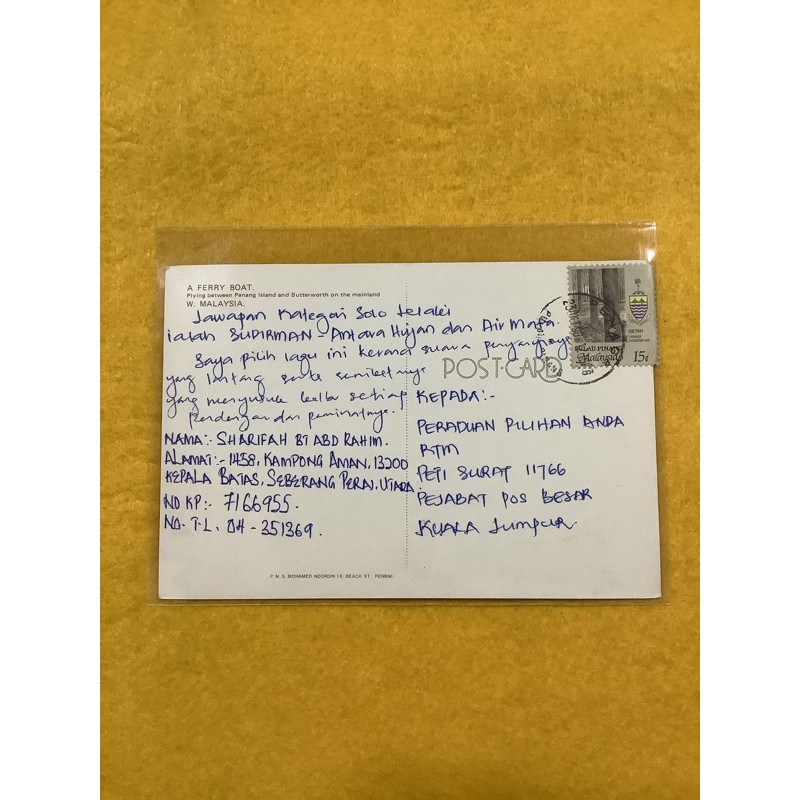 A FERRY BOAT.
Plying between Penang Island and Butterworth on the mainland
W. MALAYSIA.
Jawapan Kategori Solo Lelaki
ialah SUDIRMAN - Antara Hujan dan Air Mata.
Saya pilih lagu ini kerana suara penyanyinya
yang lantang serta senikatanya
yang menyentuh kalbu setiap
pendengar dan peminatnya.
NAMA:- SHARIFAH BT ABD RAHIM.
ALAMAT:- 1458, KAMPONG AMAN, 13200
KEPALA BATAS, SEBERANG PERAI, UTARA.
NO KP:- 7166955.
NO. T.L. 04-351369.
P. M. S. MOHAMED NOORDIN 15, BEACH ST. PENANG.
GETAH
PULAU PINANG
Malaysia 15¢
POST-CARD
KEPADA:-
PERADUAN PILIHAN ANDA
RTM
PETI SURAT 11766
PEJABAT POS BESAR
KUALA LUMPUR.